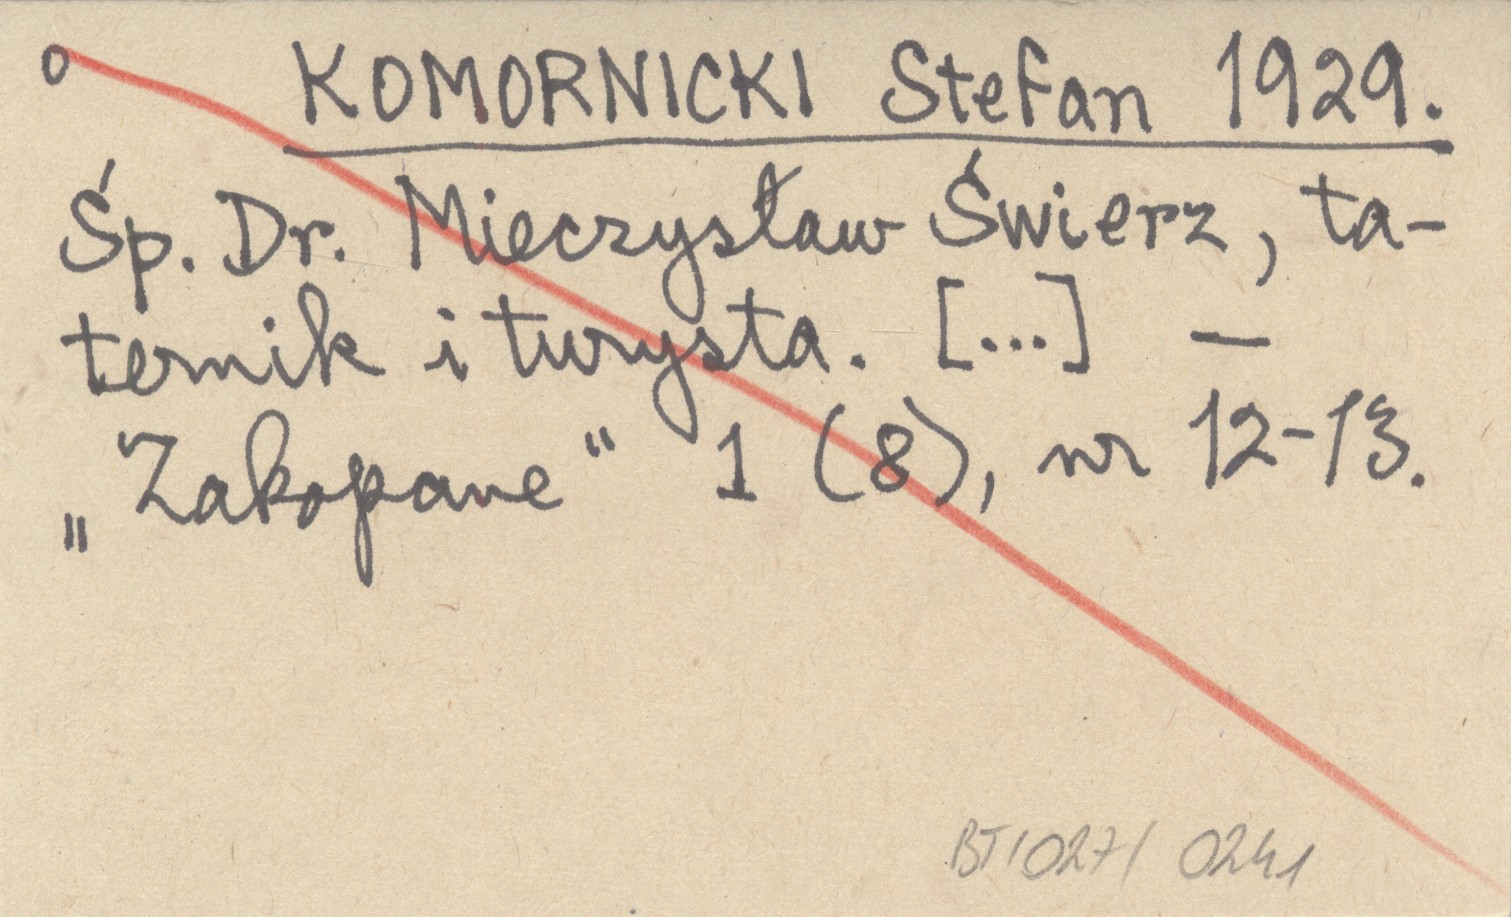 o KOMORNICKI Stefan 1929.
Śp. Dr. Mieczysław Świerz, ta-
ternik i turysta. [...] —
„Zakopane" 1 (8), nr 12-13.
BT/027/ 0241